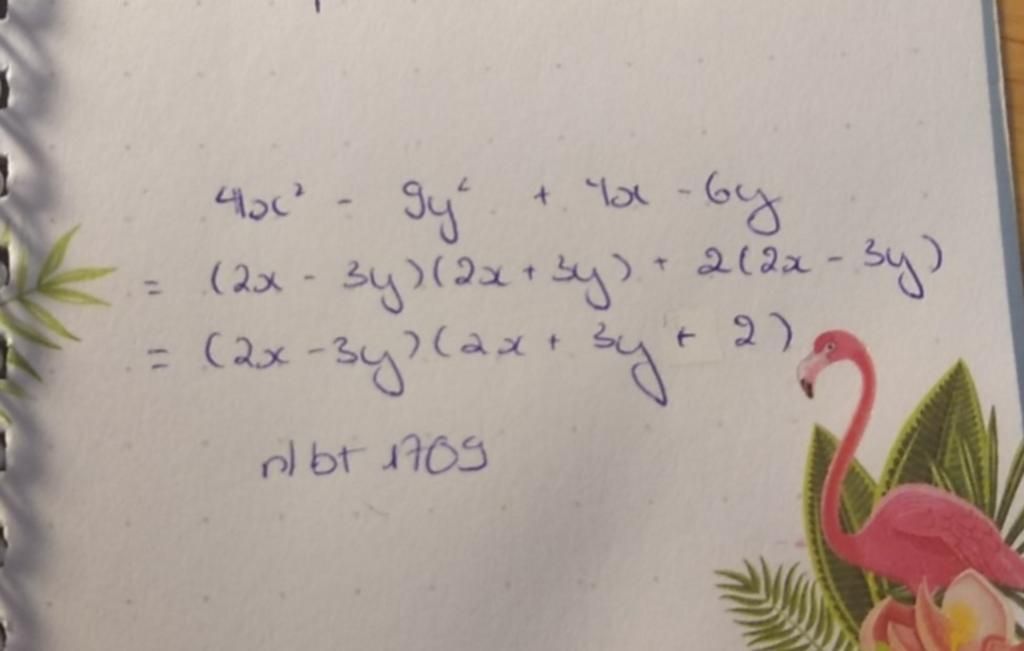 4x² - 9y² + 4x - 6y
= (2x - 3y)(2x + 3y) + 2(2x - 3y)
= (2x - 3y)(2x + 3y + 2)
nlbt 1709